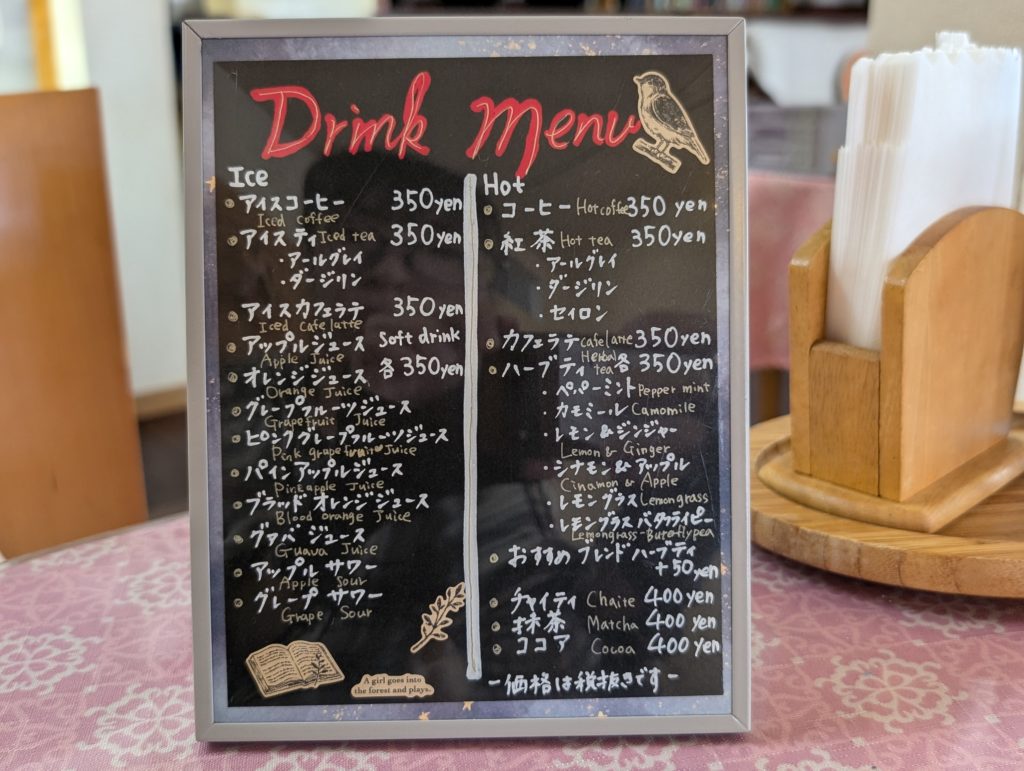 Drink Menu
Ice
アイスコーヒー 350yen
Iced coffee
アイスティ Iced tea 350yen
・アールグレイ
・ダージリン
アイスカフェラテ 350yen
Iced cafe latte
アップルジュース Soft drink
Apple Juice
オレンジジュース 各350yen
Orange Juice
グレープフルーツジュース
Grapefruit Juice
ピンクグレープフルーツジュース
Pink grapefruit Juice
パインアップルジュース
Pineapple Juice
ブラッドオレンジジュース
Blood orange Juice
グァバジュース
Guava Juice
アップルサワー
Apple Sour
グレープサワー
Grape Sour
A girl goes into
the forest and plays.
Hot
コーヒー Hot coffee 350 yen
紅茶 Hot tea 350yen
・アールグレイ
・ダージリン
・セイロン
カフェラテ cafe latte 350yen
ハーブティ Herbal tea 各 350yen
・ペパーミント Pepper mint
・カモミール Camomile
・レモン&ジンジャー
Lemon & Ginger
・シナモン&アップル
Cinamon & Apple
レモングラス Lemongrass
・レモングラスバタフライピー
おすすめブレンドハーブティ
+50yen
チャイティ Chaite 400yen
抹茶 Matcha 400yen
ココア Cocoa 400yen
-価格は税抜きです-